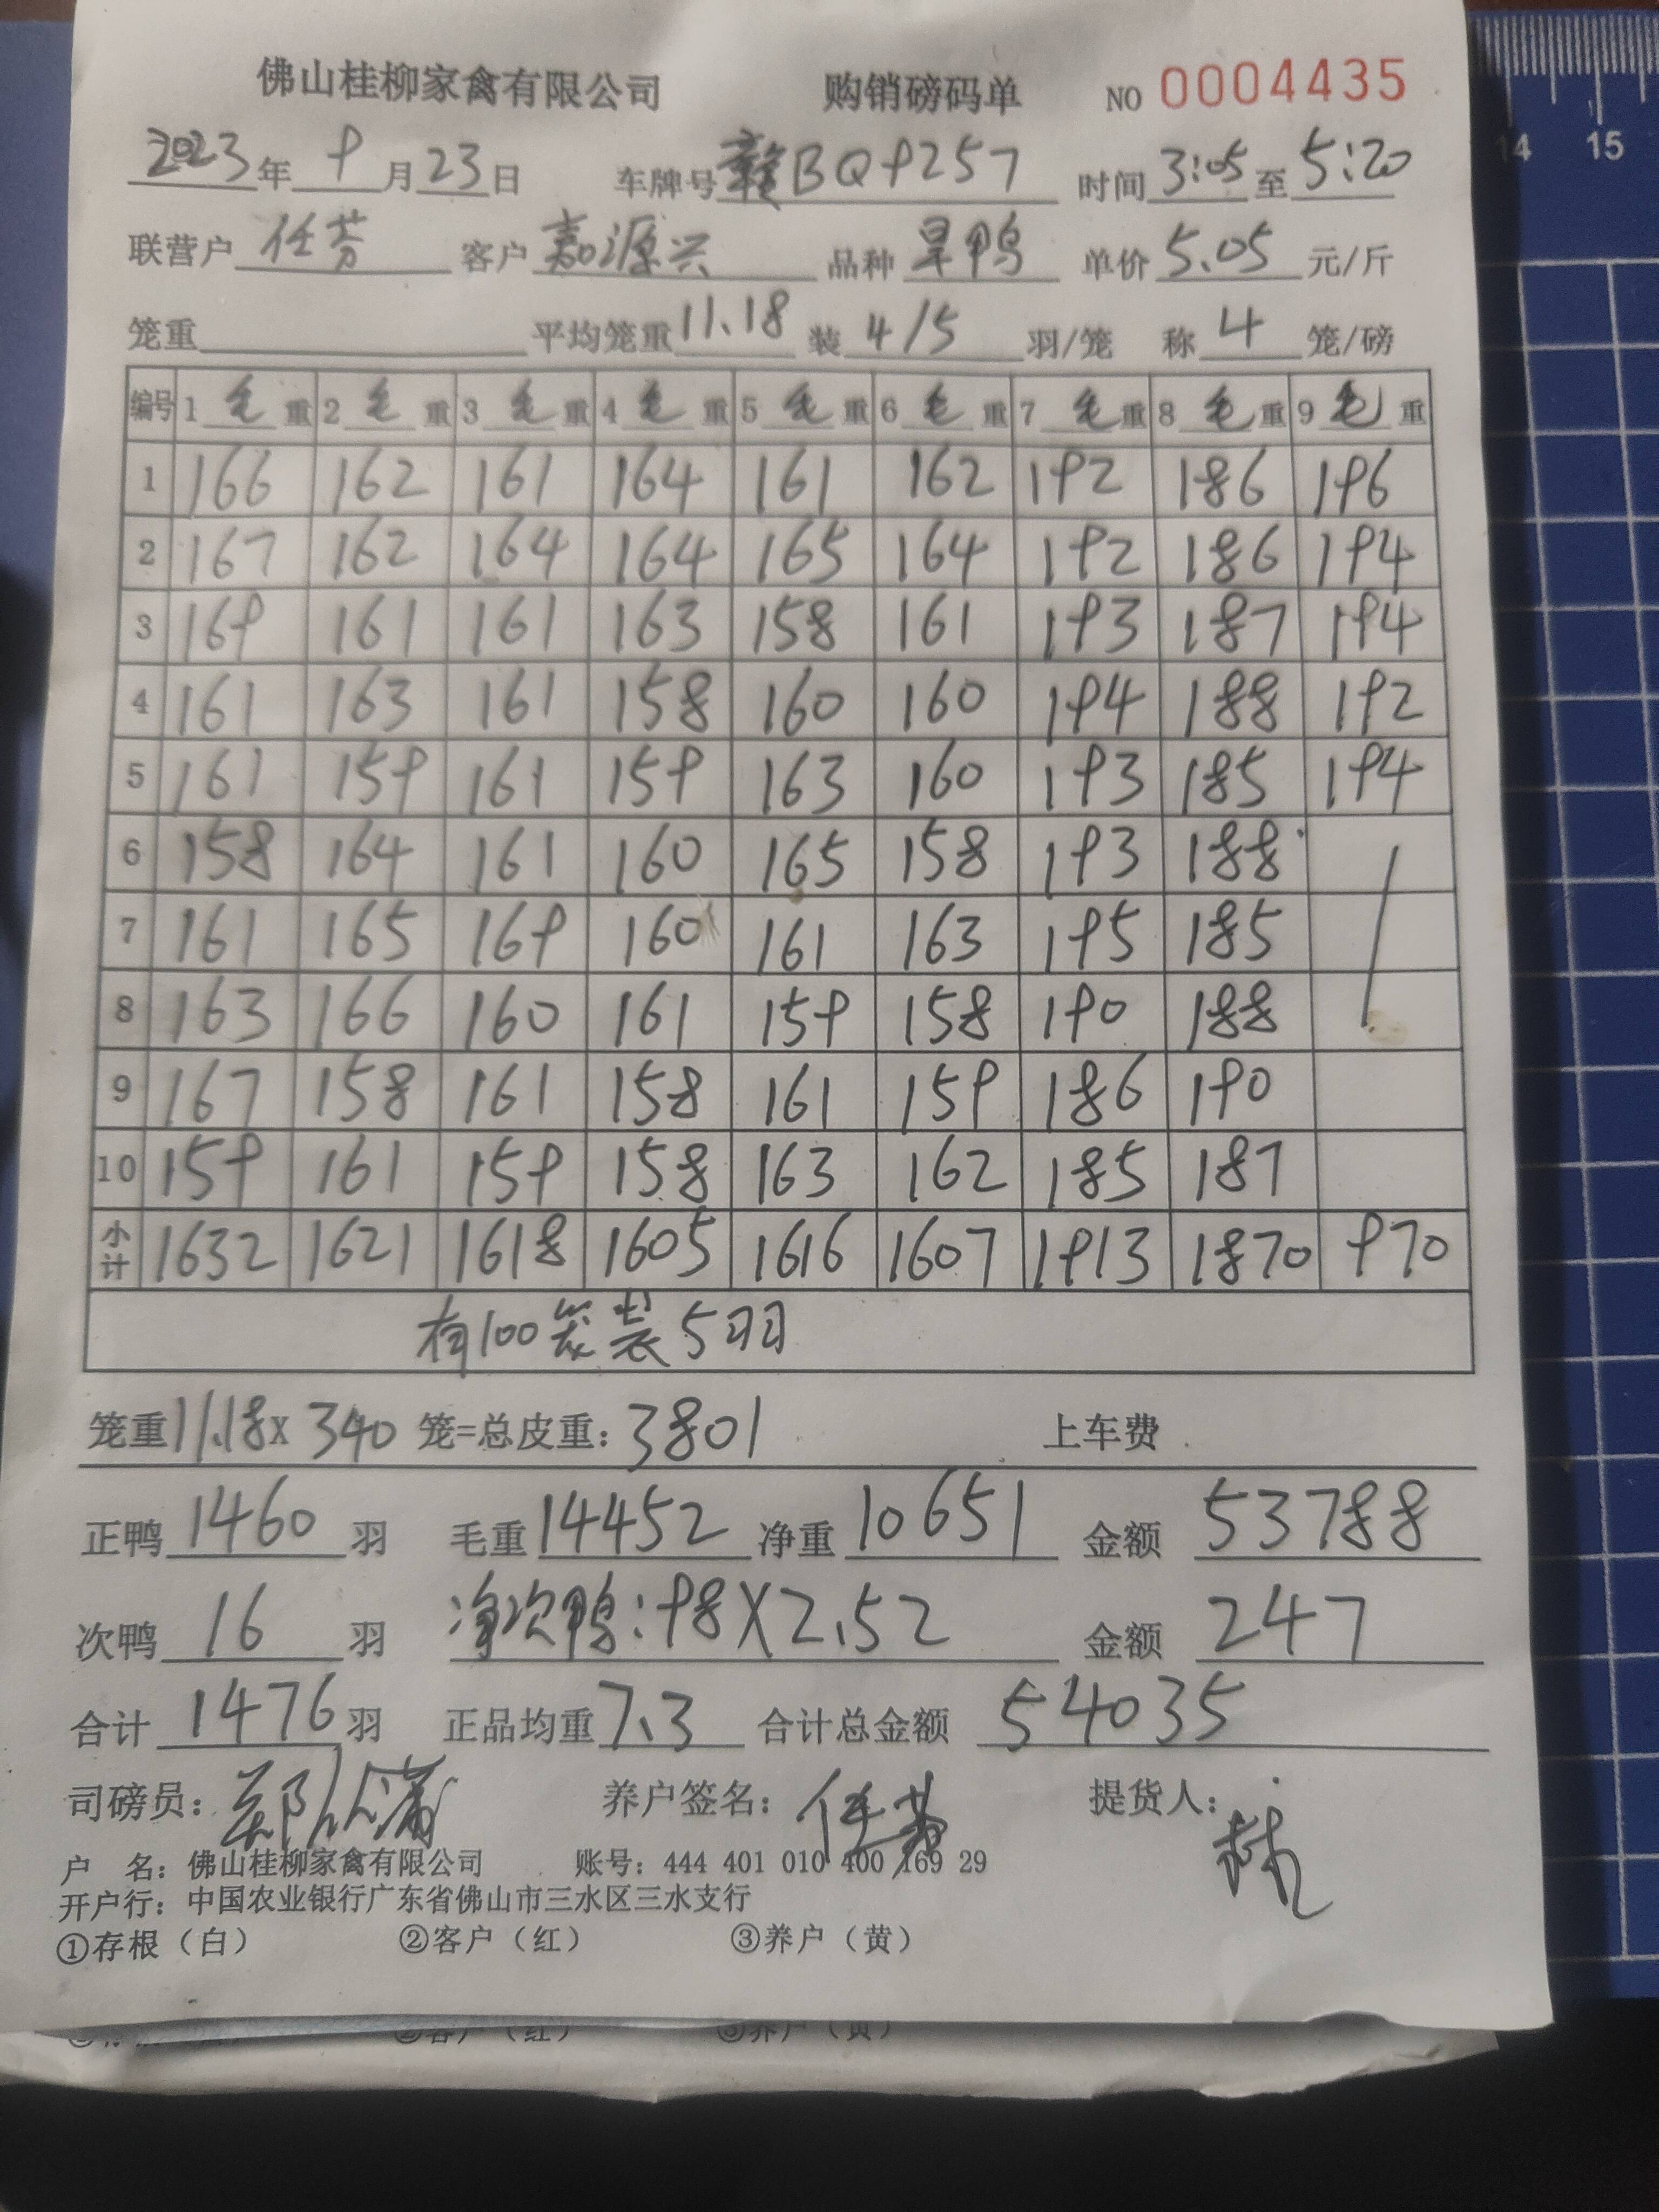 佛山桂柳家禽有限公司 购销磅码单 NO 0004435
2023年9月23日 车牌号赣BQ9257 时间3:05至5:20
联营户 任芬 客户 嘉源兴 品种 旱鸭 单价 5.05 元/斤
笼重 平均笼重 11.18 装 4/5 羽/笼 称 4 笼/磅
编号 1毛重 2毛重 3毛重 4毛重 5毛重 6毛重 7毛重 8毛重 9毛重
1 166 162 161 164 161 162 192 186 196
2 167 162 164 164 165 164 192 186 194
3 169 161 161 163 158 161 193 187 194
4 161 163 161 158 160 160 194 188 192
5 161 159 161 159 163 160 193 185 194
6 158 164 161 160 165 158 193 188
7 161 165 169 160 161 163 195 185
8 163 166 160 161 159 158 190 188
9 167 158 161 158 161 159 186 190
10 159 161 159 158 163 162 185 187
小计 1632 1621 1618 1605 1616 1607 1913 1870 970
有100笼装5羽
笼重11.18X 340 笼=总皮重: 3801 上车费
正鸭 1460 羽 毛重 14452 净重 10651 金额 53788
次鸭 16 羽 净次鸭:98X2.52 金额 247
合计 1476 羽 正品均重 7.3 合计总金额 54035
司磅员: 养户签名: 任芬 提货人:
户 名: 佛山桂柳家禽有限公司 账号: 444 401 010 400 169 29
开户行: 中国农业银行广东省佛山市三水区三水支行
①存根(白) ②客户(红) ③养户(黄)
②客户(红) ③养户(黄)
14 15